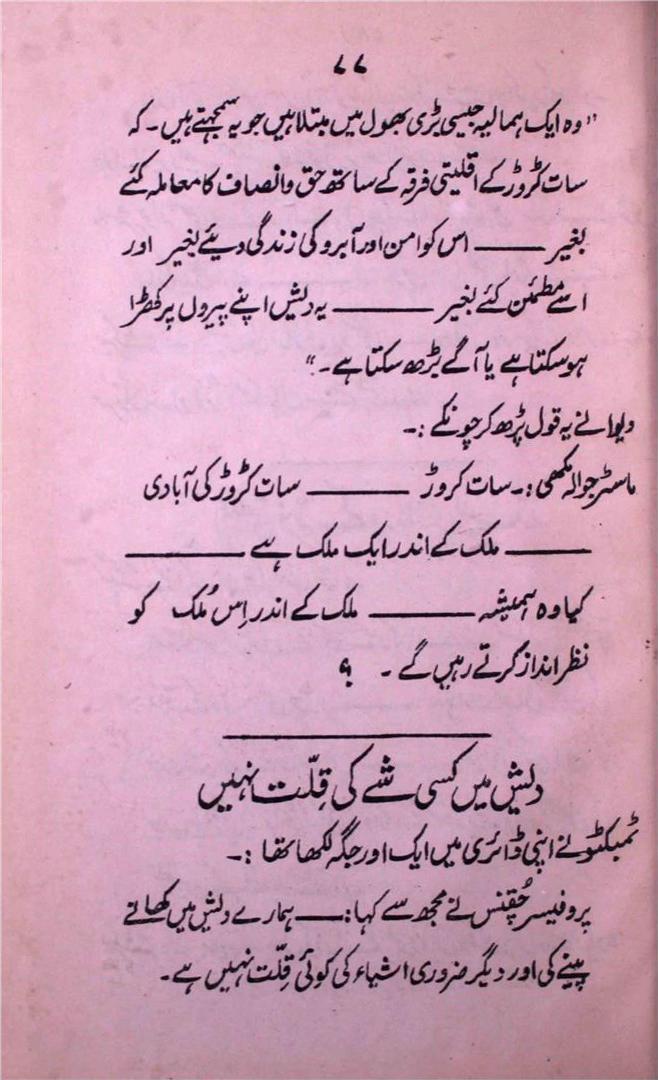 ۷۷
"وہ ایک ہمالیہ جیسی بڑی بھول میں مبتلا ہیں جو یہ سمجھتے ہیں۔ کہ
سات کڑوڑ کے اقلیتی فرقہ کے ساتھ حق وانصاف کا معاملہ کئے
بغیر ——— اس کو امن اور آبرو کی زندگی دیئے بغیر اور
اسے مطمئن کئے بغیر ——— یہ دلیش اپنے پیروں پر کھڑا
ہوسکتا ہے یا آگے بڑھ سکتا ہے۔"
دیوانے یہ قول پڑھ کر چونکے :۔
ماسٹر جوالہ مکھی :۔ سات کروڑ ——— سات کڑوڑ کی آبادی
——— ملک کے اندر ایک ملک ہے ———
کیا وہ ہمیشہ ——— ملک کے اندر اِس مُلک کو
نظر انداز کرتے رہیں گے ۔ ؟
دلیش میں کسی شے کی قِلّت نہیں
ٹمبکٹو نے اپنی ڈائری میں ایک اور جگہ لکھا تھا :۔
پروفیسر چُقنس نے مجھ سے کہا :—— ہمارے دلیش میں کھانے
پینے کی اور دیگر ضروری اشیاء کی کوئی قِلّت نہیں ہے۔